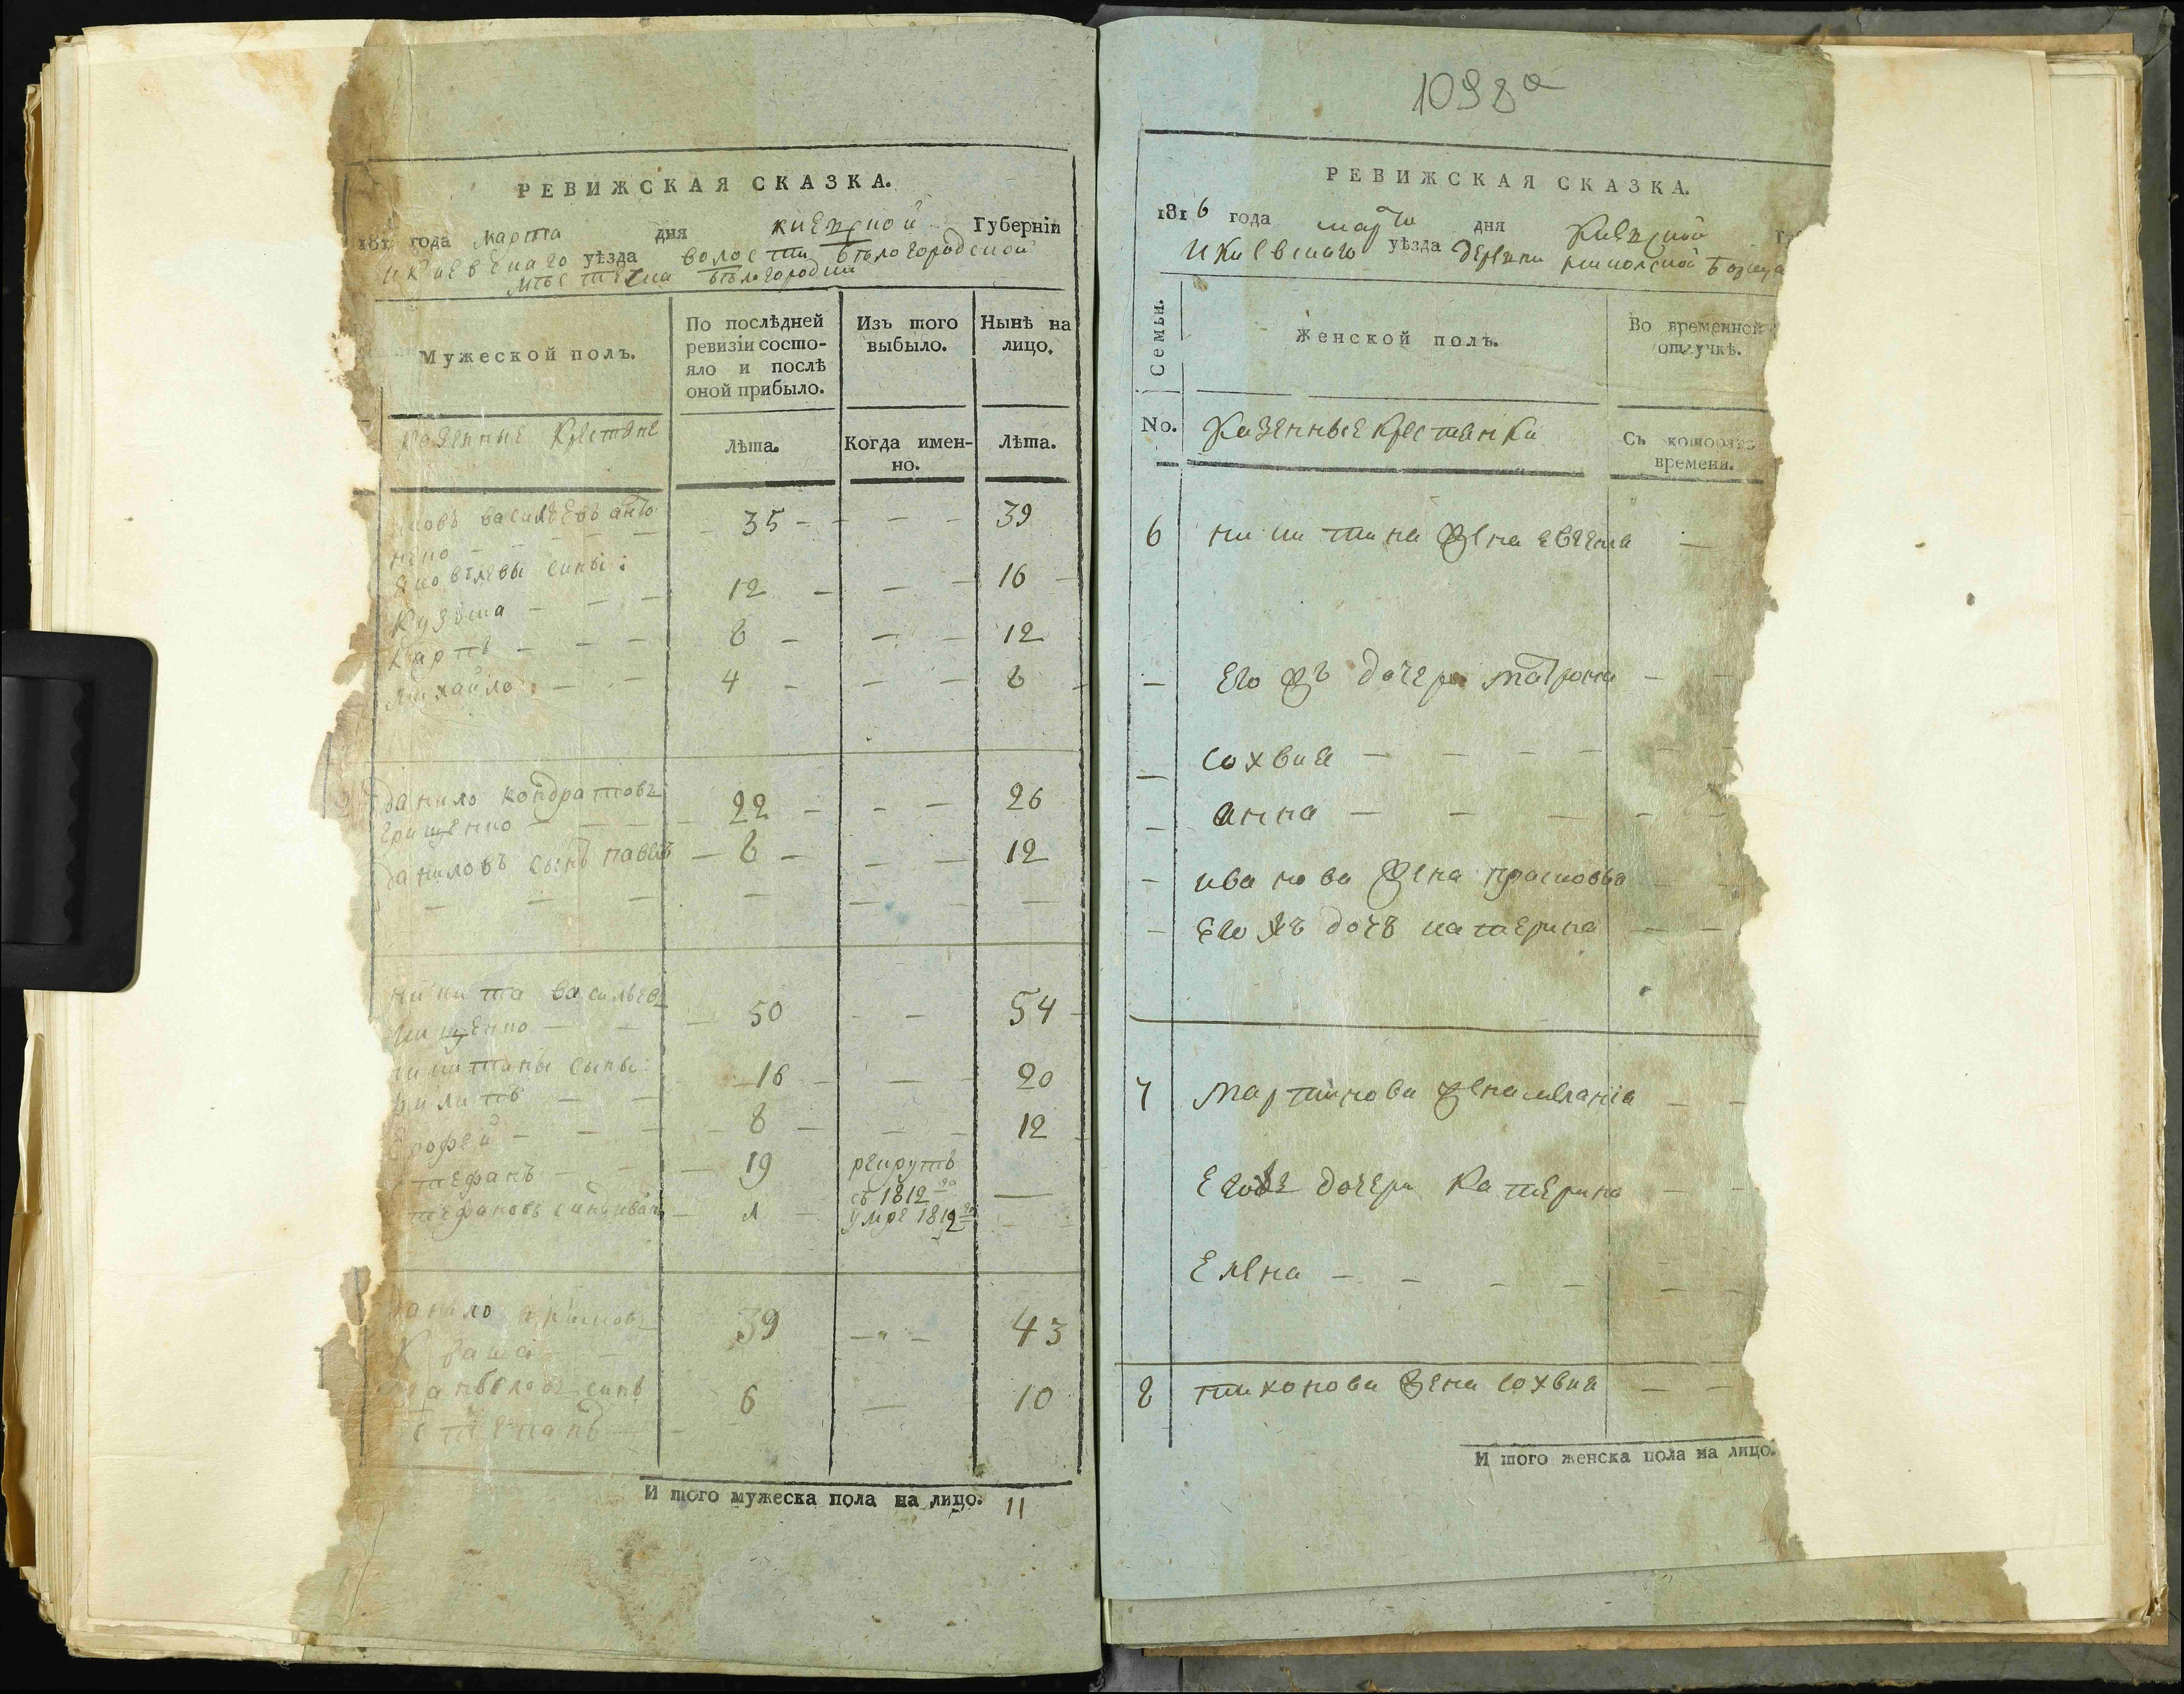 РЕВИЖСКАЯ СКАЗКА.
181 года марта дня киевской Губерніи
и киевскаго уѣзда волости бѣлогородской
мѣстечка бѣлогородки
Мужеской полъ.
По послѣдней ревизіи состояло и послѣ оной прибыло.
Изъ того выбыло.
Нынѣ на лицо.
Казенные Крестяне
Лѣта.
Когда именно.
Лѣта.
васильевъ 35 - - - 39
яковлевы сини:
Кузьма - - - 12 - - - 16
Карпъ - - - 8 - - - 12
михайло - - 4 - - - 8
данило кондратовъ
грищенко - - - 22 - - - 26
даниловъ сынъ павелъ - 8 - - - 12
никита васильевъ
ищенко - - 50 - - 54
никитины сыны:
филипъ - - 16 - - 20
ерофей - - - 8 - - - 12
стефанъ - - - 19 рекрутъ
съ 1812 го
стефановъ синъ иванъ - 1 - умре 1812 го
данило 39 - - 43
синъ 6 - 10
степанъ
И того мужеска пола на лицо. 11
1098а
РЕВИЖСКАЯ СКАЗКА.
1816 года марта дня Киевской
и Киевскаго уѣзда деревни
Семьи.
Женской полъ.
Во временной отлучкѣ.
No.
Казенные крестянки
Съ котораго времени.
6 никитина жена
- Его жъ дочери матрона - -
- сохвия - - - -
- анна - - - - -
- иванова жена прасковья - -
- Его жъ дочь катерина - -
7 мартинова жена меланіа - -
Его же дочери катерина - -
Елена - - - - - -
8 тихонова жена сохвия - -
И того женска пола на лицо.